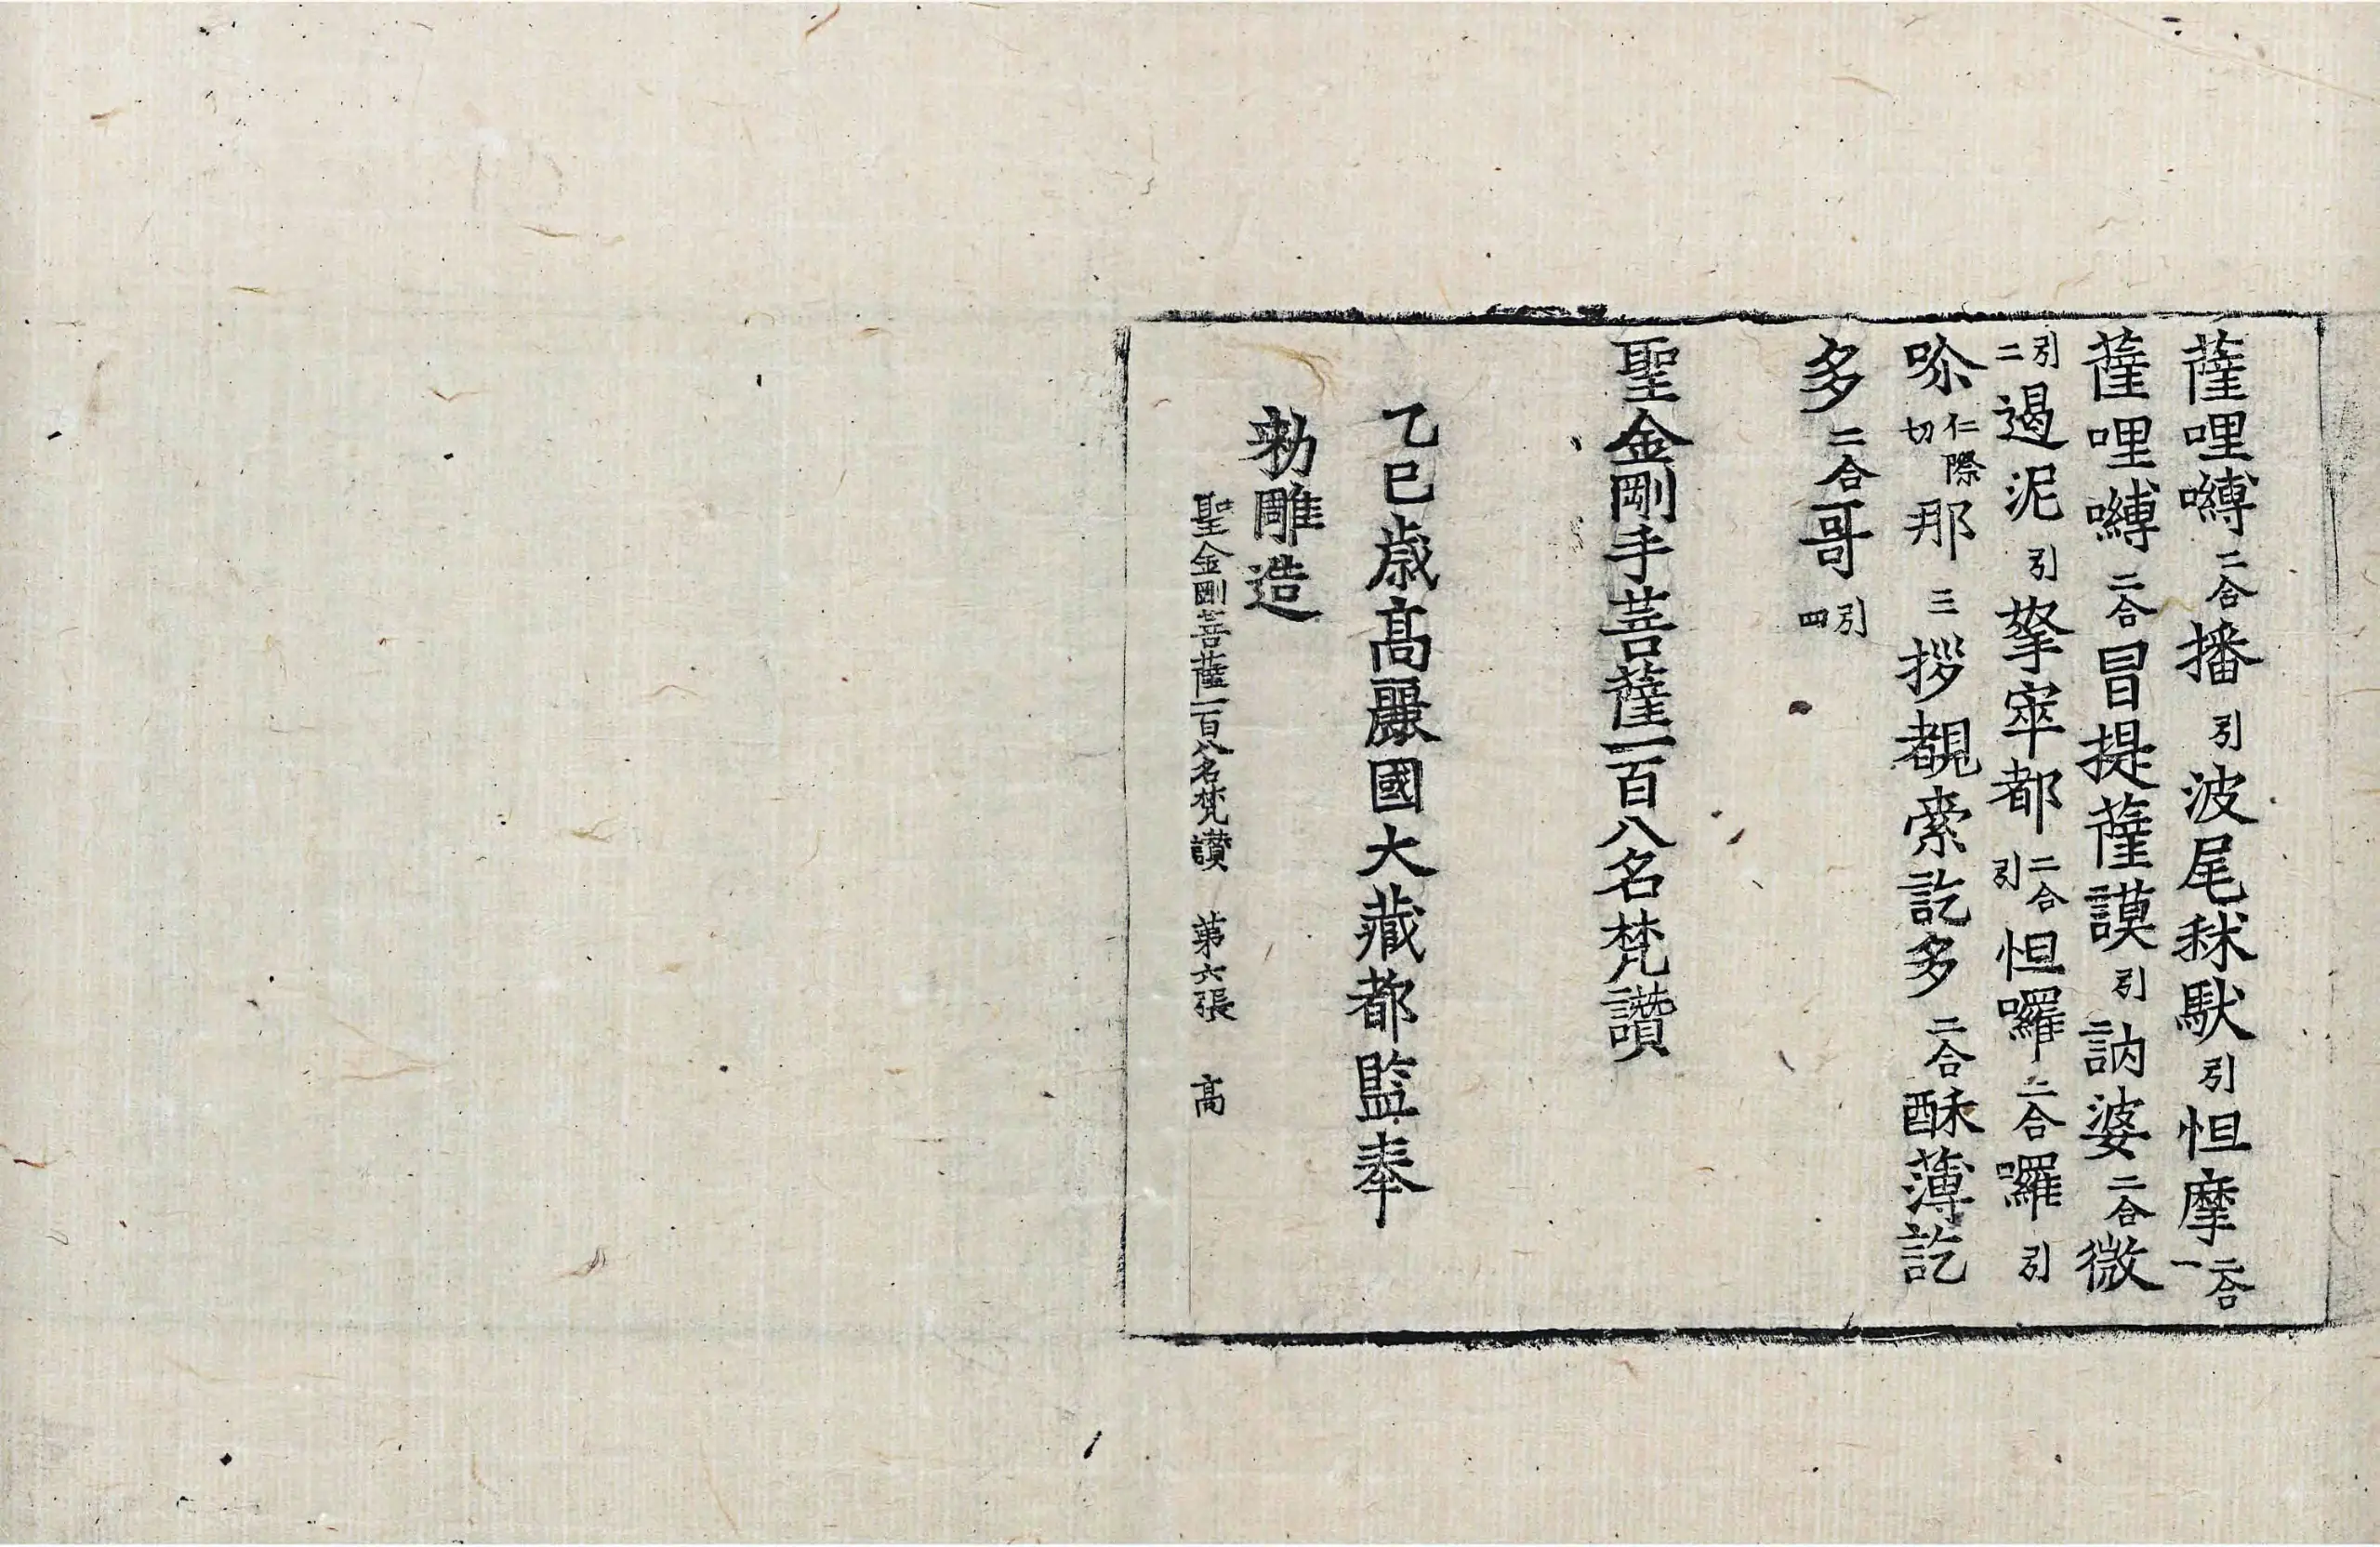 薩哩嚩二合播引波尾秣馱引怛摩二合一
薩哩嚩二合冒提薩謨引訥婆二合微
引二遏泥引拏窣都二合引怛囉二合囉引
喙仁際切那三拶覩索訖多二合酥薄訖
多二合哥引四
聖金剛手菩薩一百八名梵讚
乙巳歲高麗國大藏都監奉
勑雕造
聖金剛菩薩一百八名梵讚 第六張 高